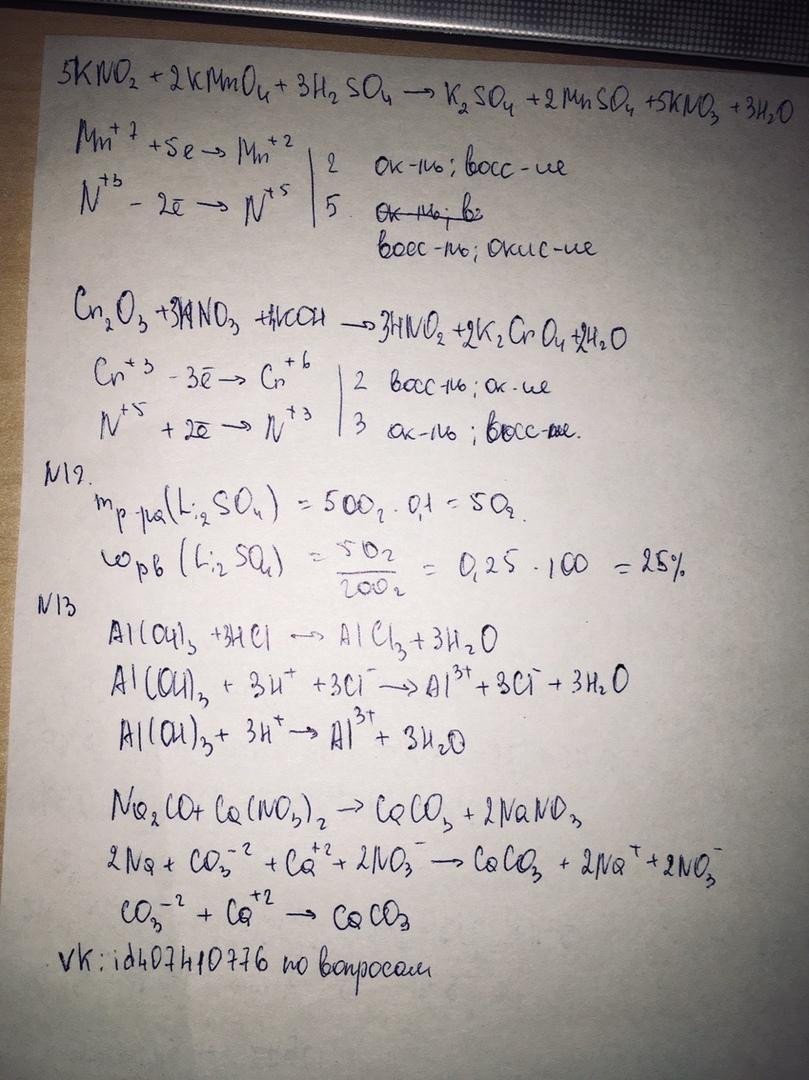 5KNO₂ + 2KMnO₄ + 3H₂SO₄ → K₂SO₄ + 2MnSO₄ + 5KNO₃ + 3H₂O
Mn⁺⁷ + 5e → Mn⁺² | 2 ок-ль; восс-ие
N⁺³ - 2ē → N⁺⁵ | 5 ок-ль; в
восс-ль; окис-ие
Cr₂O₃ + 3KNO₃ + 4KOH → 3KNO₂ + 2K₂CrO₄ + 2H₂O
Cr⁺³ - 3ē → Cr⁺⁶ | 2 восс-ль; ок-ие
N⁺⁵ + 2ē → N⁺³ | 3 ок-ль; восс-ие.
N12.
m р-ра (Li₂SO₄) = 500г · 0,1 = 50г.
ω рв (Li₂SO₄) = 50г/200г = 0,25 · 100 = 25%
N13
Al(OH)₃ + 3HCl → AlCl₃ + 3H₂O
Al(OH)₃ + 3H⁺ + 3Cl⁻ → Al³⁺ + 3Cl⁻ + 3H₂O
Al(OH)₃ + 3H⁺ → Al³⁺ + 3H₂O
Na₂CO + Ca(NO₃)₂ → CaCO₃ + 2NaNO₃
2Na + CO₃⁻² + Ca⁺² + 2NO₃⁻ → CaCO₃ + 2Na⁺ + 2NO₃⁻
CO₃⁻² + Ca⁺² → CaCO₃
vk: id407410776 по вопросам